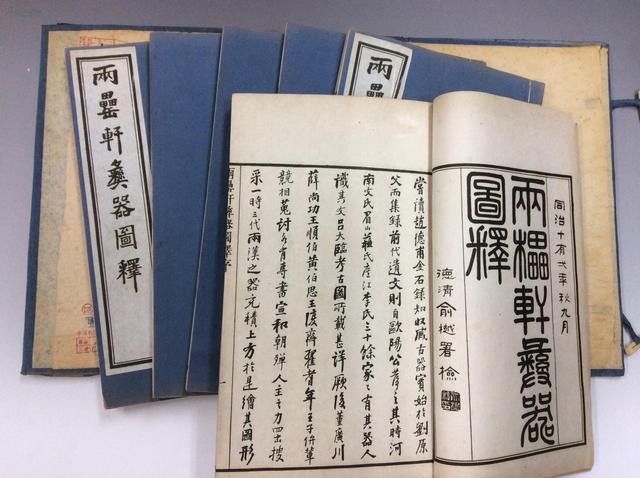 兩罍軒彝器圖釋
兩罍
同治十有弍年秋九月
兩櫑軒彝器
圖釋
德清俞樾署檢
嘗讀趙德甫金石錄知收藏古器實始於劉原
父而集錄前代遺文則自歐陽公之其時河
南文氏眉山蘓氏廬江李氏三十餘家之有其器人
識其文呂大臨考古圖所載甚詳厥後董廣川
薛尚功王順伯黃伯思王復齋翟耆年王子弁輩
競相蒐討各有專書宣和朝殫人主之力四出搜
采一時三代兩漢之器充積上方於是繪其圖形